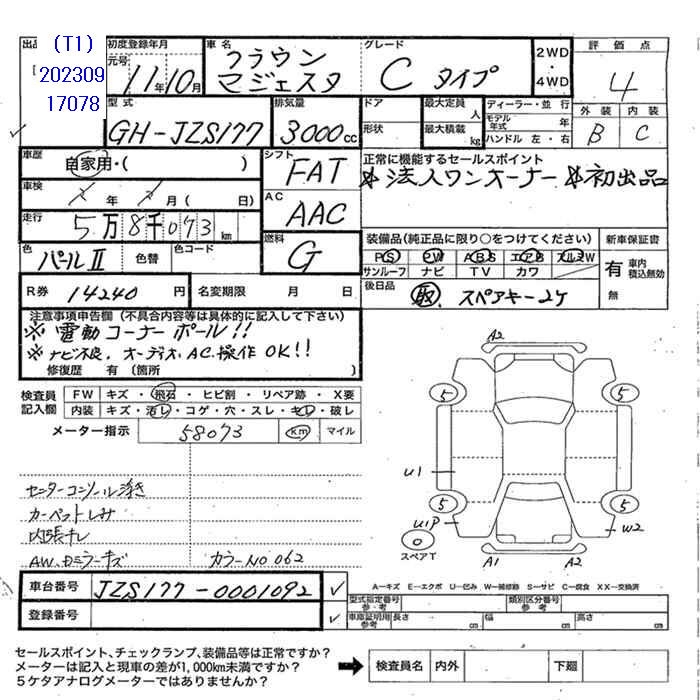 出品 (T1) 202309 17078
初度登録年月 元号 11年10月
車名 クラウン マジェスタ
グレード C タイプ
2WD・4WD
評価点 4
型式 GH-JZS177
排気量 3000cc
ドア 形状
最大定員 人
最大積載 kg
ディーラー・並行
モデル年式 年
ハンドル 左・右
外装 B 内装 C
車歴 自家用・( )
シフト FAT
正常に機能するセールスポイント
＊法人ワンオーナー ＊初出品
車検 年 月 ( 日)
AC AAC
走行 5万8千073km
色 パールⅡ 色替 色コード
燃料 G
装備品(純正品に限り○をつけてください)
PS PW ABS エアB アルミW
サンルーフ ナビ TV カワ
新車保証書 有 無 車内積込無効
R券 14240円 名変期限 月 日
後日品 取. スペアキー2ケ
注意事項申告欄(不具合内容等は具体的に記入して下さい)
※電動コーナーポール!!
※ナビ不良、オーディオ、AC操作OK!!
修復歴 有 (箇所
検査員記入欄
FW キズ・飛石・ヒビ割・リペア跡・X要
内装 キズ・汚し・コゲ・穴・スレ・キレ・破レ
メーター指示 58073 km マイル
A2
5 5
U1
5 5
U1P W2
0
スペアT
A1 A2
センターコンソール浮き
カーペットしみ
内張キレ
AW.ミラーキズ カラーNO 062
車台番号 JZS177-0001092
登録番号
A−キズ E−エクボ U−凹み W−補修跡 S−サビ C−腐食 XX−交換済
型式指定番号 参・考 類別区分番号 参・考
車庫証明用参考 長さ cm 幅 cm 高さ cm
セールスポイント、チェックランプ、装備品等は正常ですか?
メーターは記入と現車の差が1,000km未満ですか?
5ケタアナログメーターではありませんか?
検査員名 内外 下廻